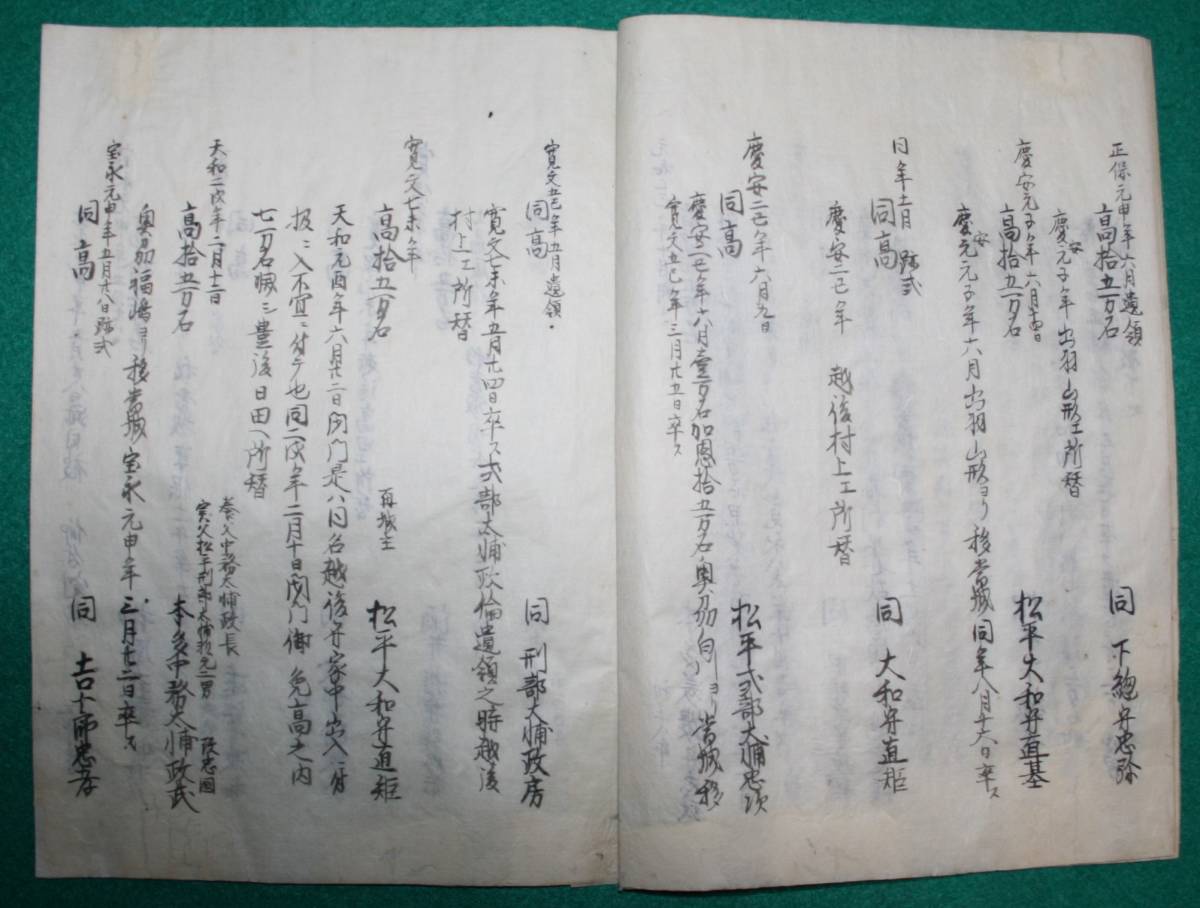 正保元申年六月遺領
高拾五万石
同 下総守忠弥
慶安元子年出羽山形エ所替
慶安元子年六月十四日
高拾五万石
松平大和守直基
慶安元子年六月出羽山形ヨリ移当城同年八月十六日卒ス
同年十一月 跡式
同高
同 大和守直矩
慶安二丑年 越後村上エ所替
慶安二丑年六月九日
同高
松平式部大輔忠次
慶安二丑年六月壹万石加恩拾五万石奥刕白川ヨリ当城移
寛文五巳年三月廿五日卒ス
寛文五巳年五月遺領
同高
同 刑部大輔政房
寛文七未年五月廿四日卒ス式部太輔政倫遺領之時越後
村上エ所替
寛文七未年
高拾五万石
再城主
松平大和守直矩
天和元酉年六月廿二日閉門是ハ同名越後守家中出入ニ付
扱ニ入不宜ニ付テ也同二戌年二月十日閉門御免高之内
七万石減シ豊後日田ヘ所替
天和二戌年二月十二日
高拾五万石
養父中務太輔政長
実父松平刑部太輔頼元二男
改忠国
本多中務大輔政武
奥刕福嶋ヨリ移当城宝永元申年三月廿二日卒ス
宝永元申年五月十八日跡式
同高
同 吉十郎忠孝